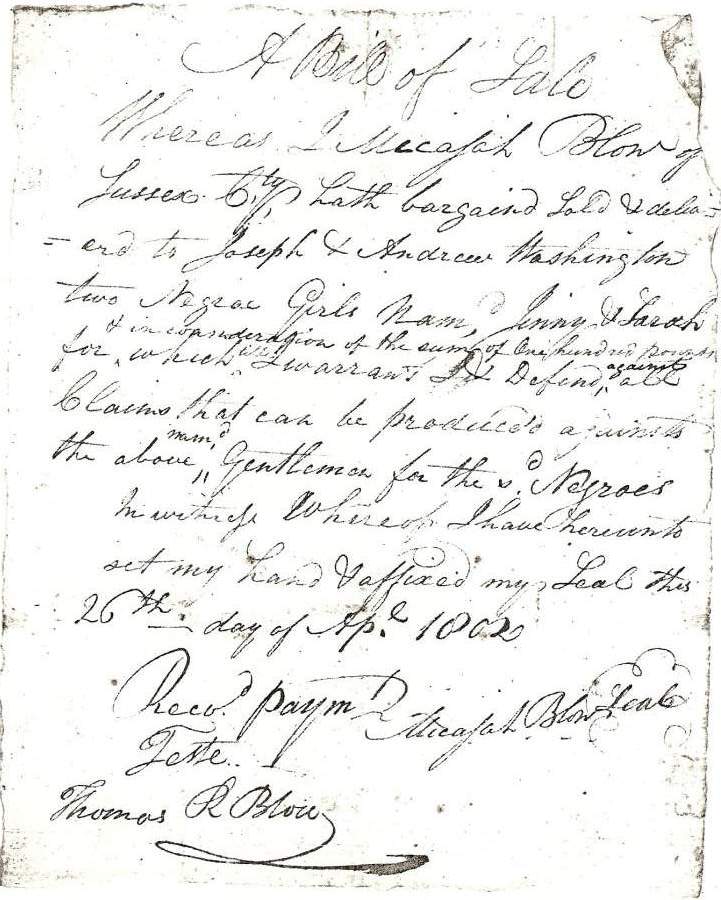 A Bill of Sale
Whereas I Micajah Blow of
Sussex Cty, hath bargain'd Sold & deliv=
=erd to Joseph & Andrew Washington
two Negroe Girls Nam,d Jinny & Sarah
& in consideration of the sum of One hundred pounds
for which I warrant & Defend, against all
Claims that can be produced against
the above nam,d Gentlemen for the s.d Negroes
In witness Whereof I have hereunto
set my hand & affixed my Seal this
26th day of Apl. 1802
Recd. paymt
Micajah Blow Seal
Teste
Thomas R Blow